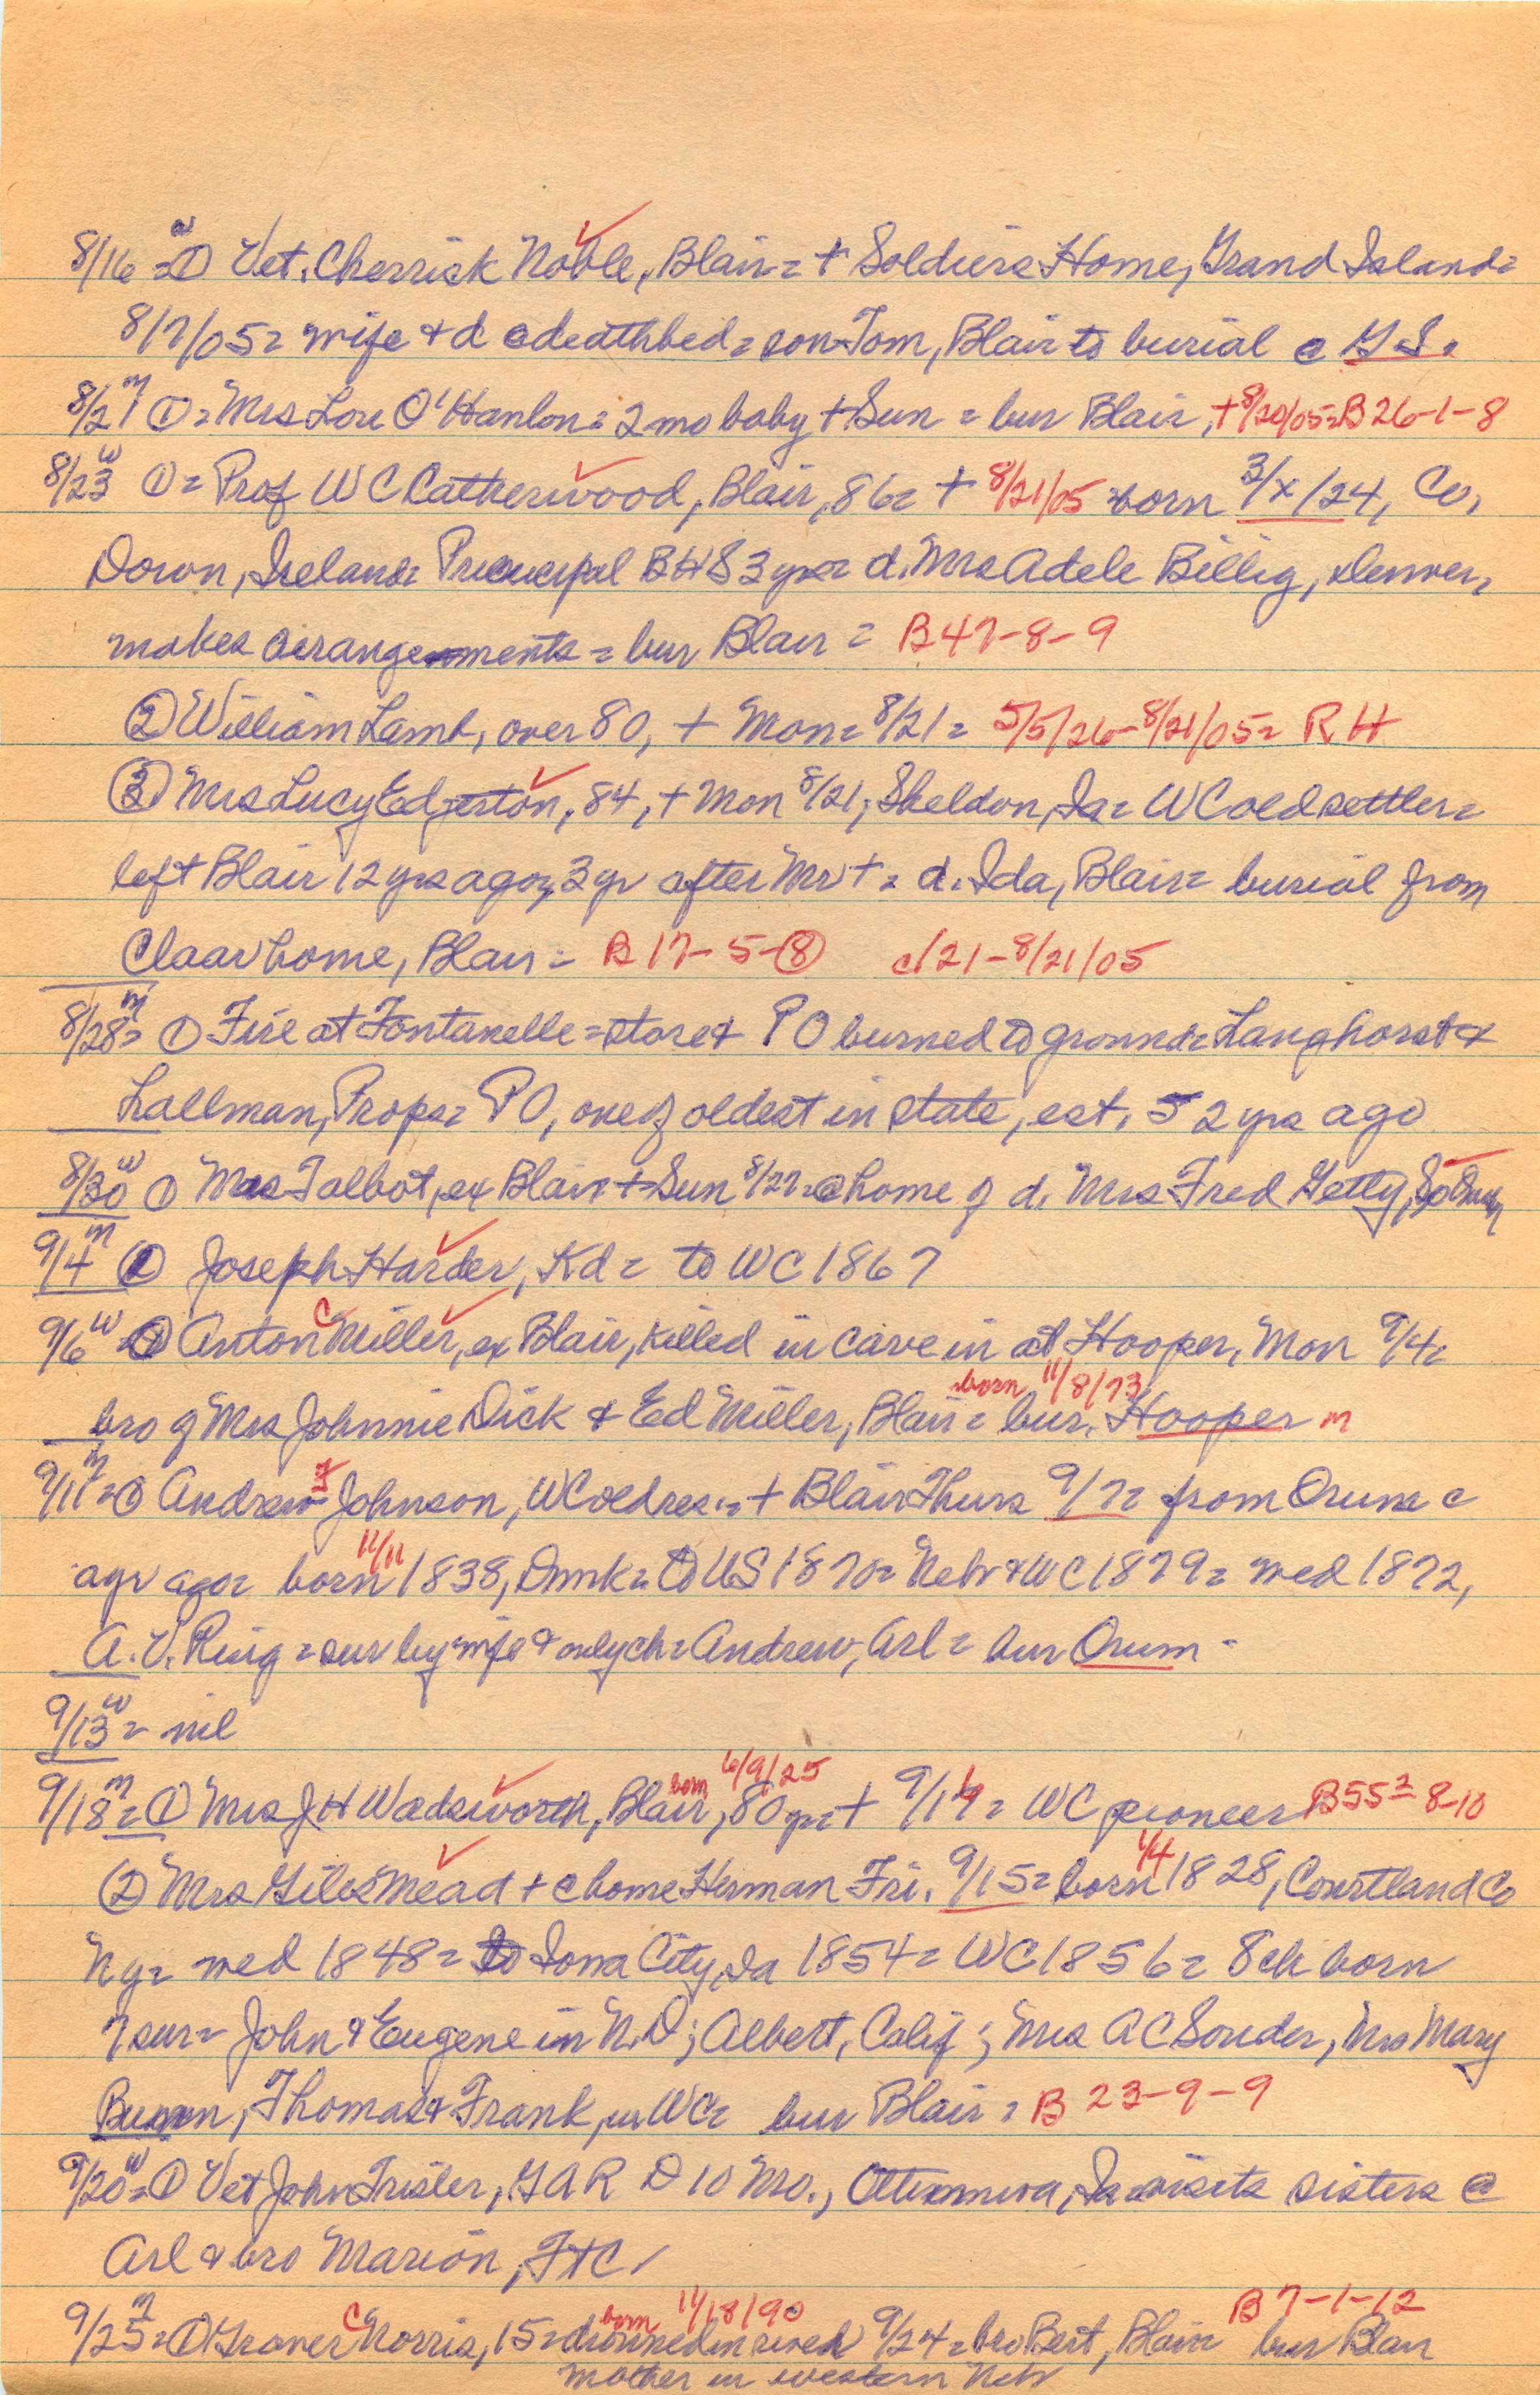 8/16 w = ① Vet. Cherrick Noble, Blair = + Soldiers Home, Grand Island =
8/7/05 = wife & d @ deathbed = son Tom, Blair to burial @ G I.
8/21 m ① = Mrs Lou O'Hanlon = 2 mo baby + Sun = bur Blair, + 8/20/05 = B 26-1-8
8/23 w ① = Prof W C Catherwood, Blair, 86 = + 8/21/05 born 3/x/24, Co,
Down, Ireland = Principal BHS 3 yrs = d. Mrs Adele Billig, Denver,
makes arrangements = bur Blair = B 47-8-9
② William Lamb, over 80, + Mon = 8/21 = 5/5/26 - 8/21/05 = R H
③ Mrs Lucy Edgerton, 84, + Mon 8/21, Sheldon, Ia = WC old settler =
left Blair 12 yrs ago, 3 yr after Mr + = d. Ida, Blair = burial from
Claar home, Blair = B 17-5-⑧ c/21 - 8/21/05
8/28 m = ① Fire at Fontanelle = store & PO burned to ground = Langhorst &
Lallman, Props = PO, one of oldest in state, est. 52 yrs ago
8/30 w ① Mrs Talbot, ex Blair + Sun 8/27 = @ home of d. Mrs Fred Getty, So
9/4 m ① Joseph Harder, Kd = to WC 1867
9/6 w = ① Anton C Miller, ex Blair, killed in cave in at Hooper, Mon 9/4 =
bro of Mrs Johnnie Dick & Ed Miller, Blair = born 11/8/73 bur. Hooper m
9/11 m = ① Andrew J Johnson, WC old res. = + Blair Thurs 9/7 = from Orum @
a yr ago = born 11/11 1838, Dnmk = to US 1870 = Nebr & WC 1879 = wed 1872,
A. V. Ring = sur by wife & only ch = Andrew, Arl = bur Orum -
9/13 w = nil
9/18 m = ① Mrs J H Wadsworth, Blair, born 6/9/25 80 yr = + 9/14 = WC pioneer B 55 2 = 8-10
② Mrs Giles Mead + @ home Herman Fri. 9/15 = born 1/4 1828, Courtland Co
N Y = wed 1848 = to Iowa City, Ia 1854 = WC 1856 = 8 ch born
7 sur = John & Eugene in N.D; Albert, Calif; Mrs A C Souder, Mrs Mary
Thomas & Frank, in WC = bur Blair = B 23-9-9
9/20 w = ① Vet John Trisler, GAR D 10 Mo., Ottumwa, Ia = visits sisters @
Arl & bro Marion, FtC
9/25 m = ① Grover C Norris, 15 = born 11/18/90 drowned in river 9/24 = bro Bert, Blair B 7-1-12 bur Blair
mother in western Nebr